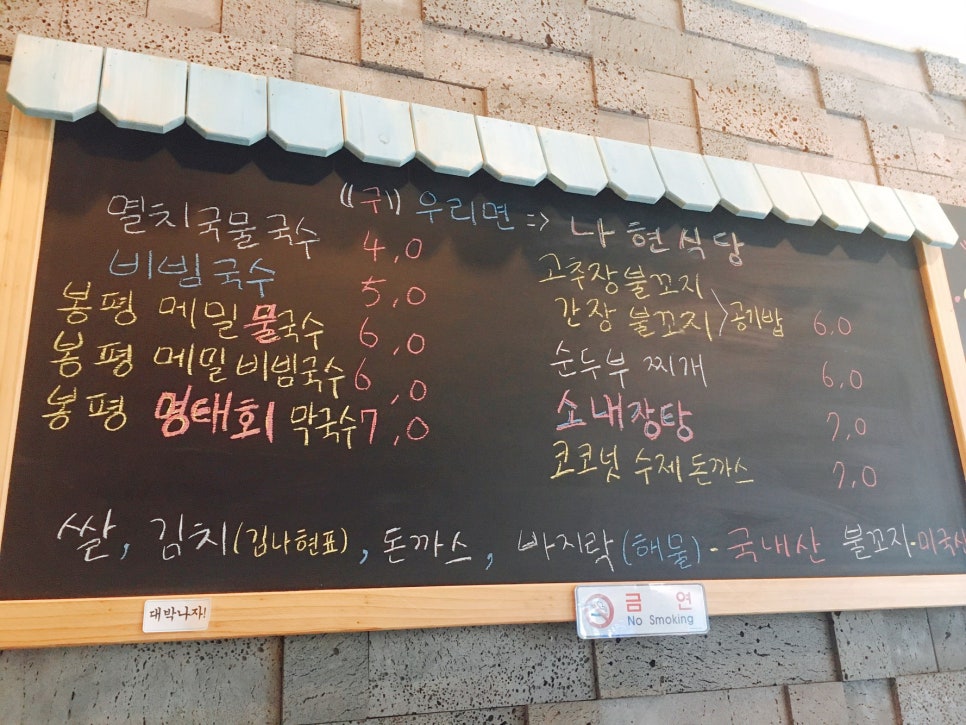 ((구)) 우리면 => 나현식당
멸치국물국수 4,0
비빔국수 5,0
봉평 메밀 물국수 6,0
봉평 메밀 비빔국수 6,0
봉평 명태회 막국수 7,0
고추장 불꼬지
간장 불꼬지 > 공기밥 6,0
순두부 찌개 6,0
소내장탕 7,0
코코넛 수제 돈까스 7,0
쌀, 김치(김나현표), 돈까스, 바지락(해물) - 국내산 불꼬지-미국산
대박나자!
금연
No Smoking